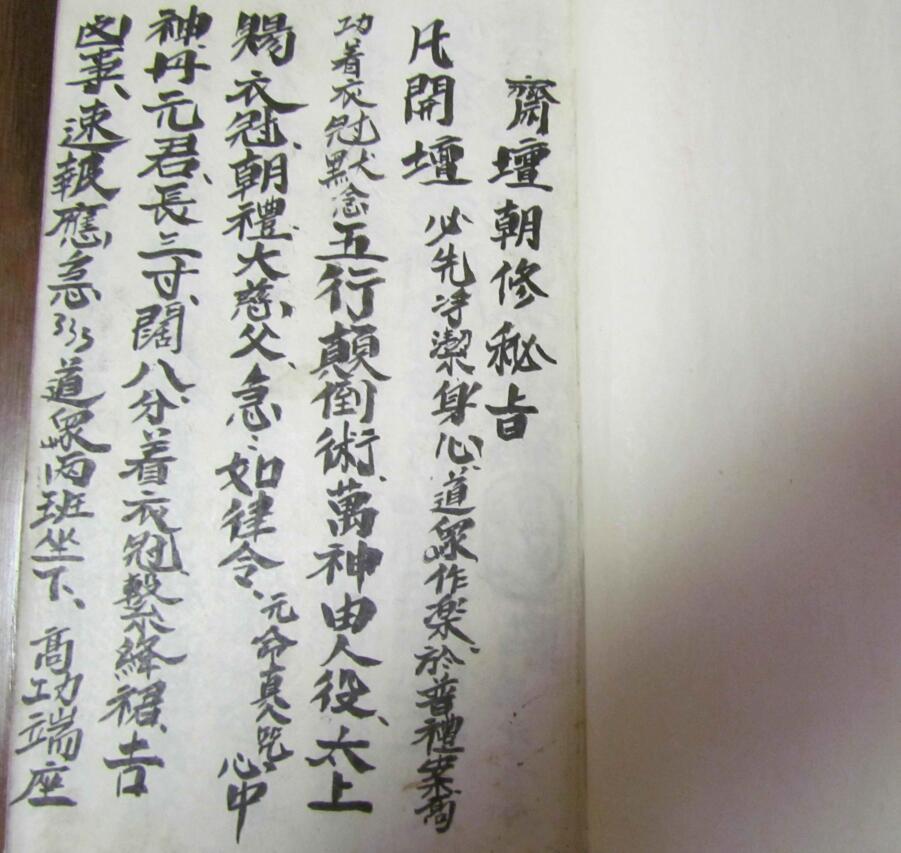 齋壇朝修秘旨
凡開壇必先净潔身心、道眾作楽、於普禮案、高
功着衣冠默念五行顛倒術、萬神由人役、太上
賜衣冠、朝禮大慈父、急〻如律令、元命真人咒、心中
神、丹元君、長三寸、闊八分、着衣冠、繫絳裙、吉
凶事、速報應、急道眾两班坐下、高功端座